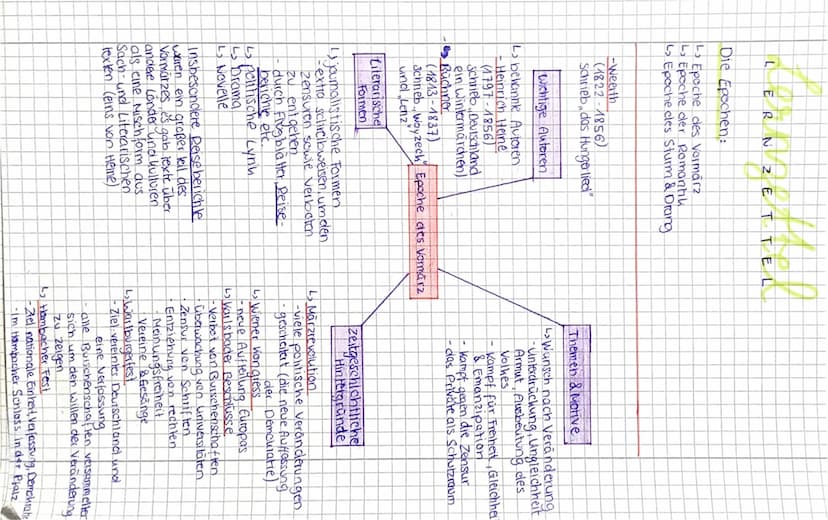 Lernzettel
LERNZETTEL
Die Epochen:
↳ Epoche des Vormärz
↳ Epoche der Romantik
↳ Epoche des Sturm & Drang
- Weerth
(1822 - 1856)
schrieb „das Hungerlied"
wichtige Autoren
↳ bekannte Autoren
- Heinrich Heine
(1797 - 1856)
schrieb „Deutschland
ein Wintermärchen)
Büchner
(1813 - 1837)
schrieb „Woyzeck"
und „Lenz"
Themen & Motive
↳ Wunsch nach Veränderung
Unterdrückung, Ungleichheit
Armut, Ausbeutung des
Volkes
- Kampf für Freiheit, Gleichhei
& Emanzipation
- Kampf gegen die Zensur
- das Private als Schutzraum
Epoche des Vormärz
Literarische
Formen
↳ journalistische Formen
- extra Schreibweisen um den
Zensuren sowie Verboten
zu entgehen
- durch Flugblätter, Reise-
berichte etc.
↳ politische Lyrik
↳ Drama
↳ Novelle
Insbesondere Reiseberichte
waren ein großer Teil des
Vormärzes, es gab Texte über
andere Länder und Kulturen
als eine Mischform aus
Sach- und Literarischen
Texten (eins von Heine)
zeitgeschichtliche
Hintergründe
↳ Märzrevolution
- viele politische Veränderungen
- gescheitert (die neue Auffassung
der Demokratie)
↳ Wiener Kongress
- neue Aufteilung Europas
↳ Karlsbader Beschlüsse
- Verbot von Burschenschaften
- Überwachung von Universitäten
- Zensur von Schriften
- Entziehung von Rechten
- Meinungsfreiheit
Vereine & Gesänge
↳ Wartburgfest
- Ziel vereintes Deutschland und
eine Verfassung
- alle Burschenschaften versammelten
sich um den Willen der Veränderung
zu zeigen
↳ Hambacher Fest
- Ziel nationale Einheit, Verfassung, Demokratie
- Im Hambacher Schloss in der Pfalz